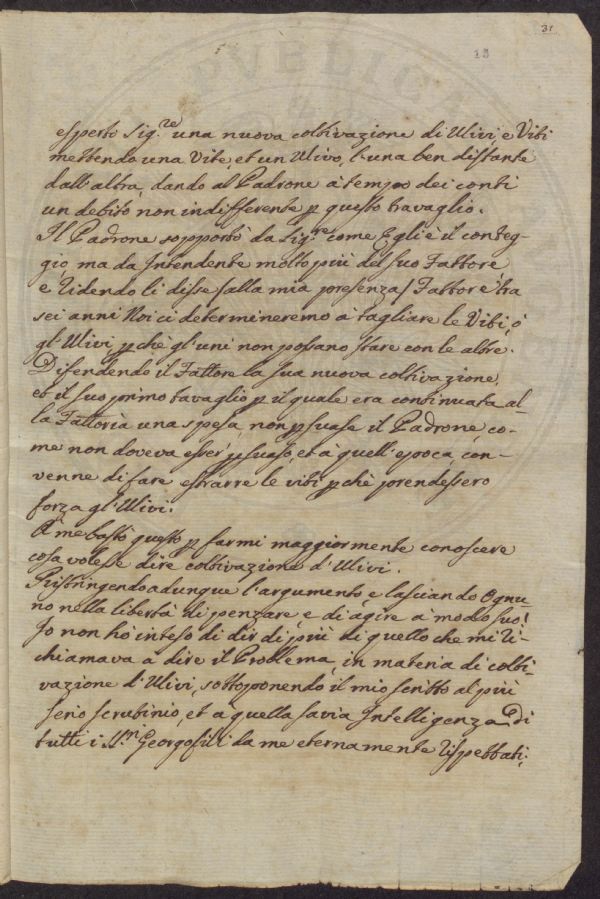 31
19
esperto Sig.re una nuova coltivazione di Ulivi e Viti
mettendo una Vite, et un Ulivo, l'una ben distante
dall'altra, dando al Padrone à tempo dei conti
un debito non indifferente p questo travaglio.
Il Padrone sopportò da Sig.re come Egli è il conteg-
gio, ma da Intendente molto più del suo Fattore
e ridendo li disse / alla mia presenza / Fattore tra
sei anni Noi ci determineremo à tagliare le Viti, ò
gl'Ulivi p chè gl'uni non possano stare con le altre.
Difendendo il Fattore la sua nuova coltivazione,
et il suo primo tavaglio p il quale era continuata al-
la Fattoria una spesa, non p suase il Padrone, co-
me non doveva esser p suaso, et à quell'epoca con-
venne di fare estrarre le viti p chè prendessero
forza gl'Ulivi.
A me bastò questo p farmi maggiormente conoscere
cosa volesse dire coltivazione d'Ulivi.
Ristringendo adunque l'argumento e lasciando Ognu-
no nella libertà di penzare, e di agire à modo suo!
Io non hò inteso di dir di più di quello che mi ri-
chiamava a dire il Problema, in materia di colti-
vazione d'Ulivi, sottoponendo il mio scritto al più
serio scrutinio, et a quella savia Intelligenza di
tutti i Georgofili da me eternamente rispettati.
PVBLICA